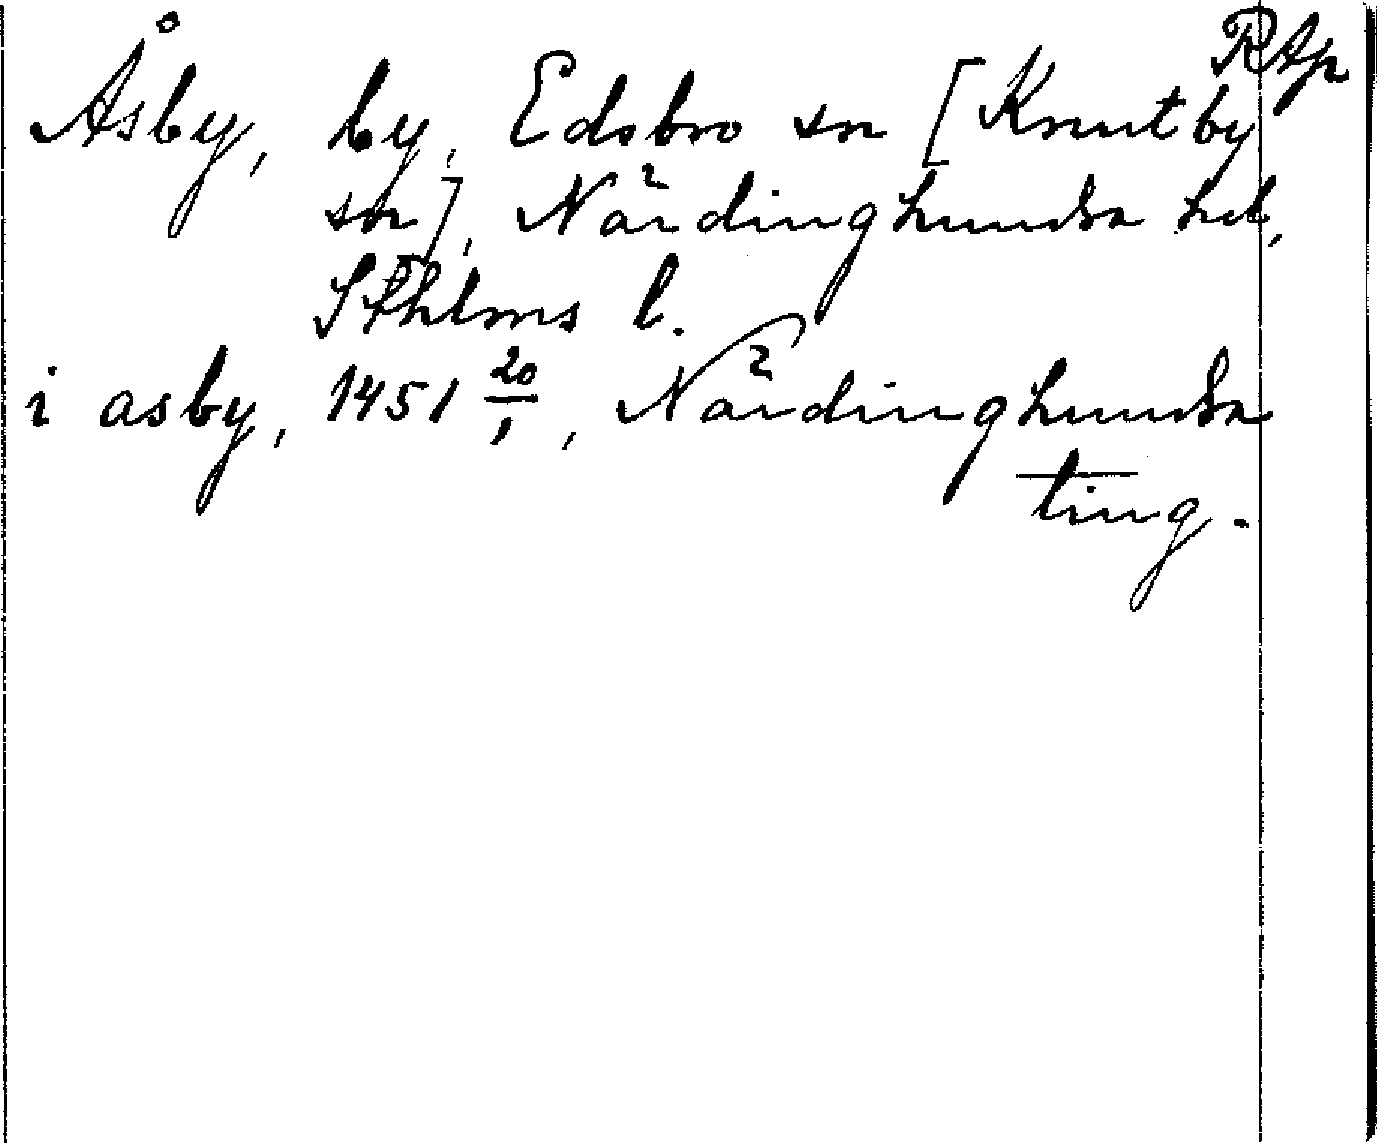 RAp
Åsby, by, Edsbro sn [Knutby
sn], Närdinghundra hd,
Sthlms l.
i asby, 1451 20/1, Närdinghundra
ting.